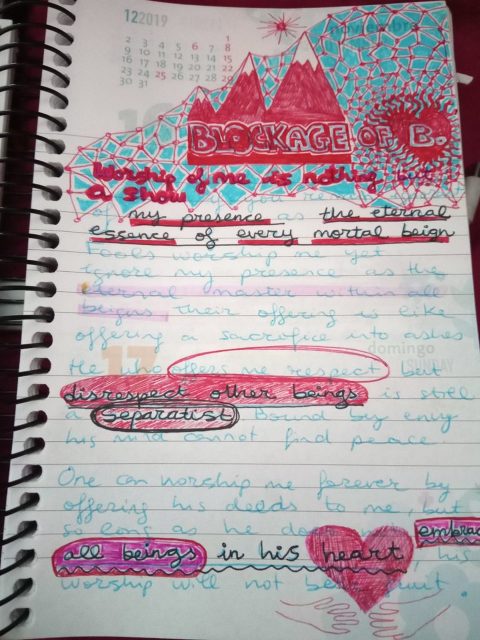 12 2019
1
2 3 4 5 6 7 8
9 10 11 12 13 14 15
16 17 18 19 20 21 22
23 24 25 26 27 28 29
30 31
BLOCKAGE OF B.
Worship of me is nothing but
a show if you
of my presence as the eternal
essence of every mortal beign
Fools worship me yet
ignore my presence as the
eternal master within all
beigns their offering is like
offering a sacrifice into ashes
domingo
17
He who offers me respect but
disrespect other beings is still
a separatist Bound by envy
his mind cannot find peace
One can worship me forever by
offering his deeds to me, but
so long as he embrac
all beings in his heart, his
worship will not bear fruit.